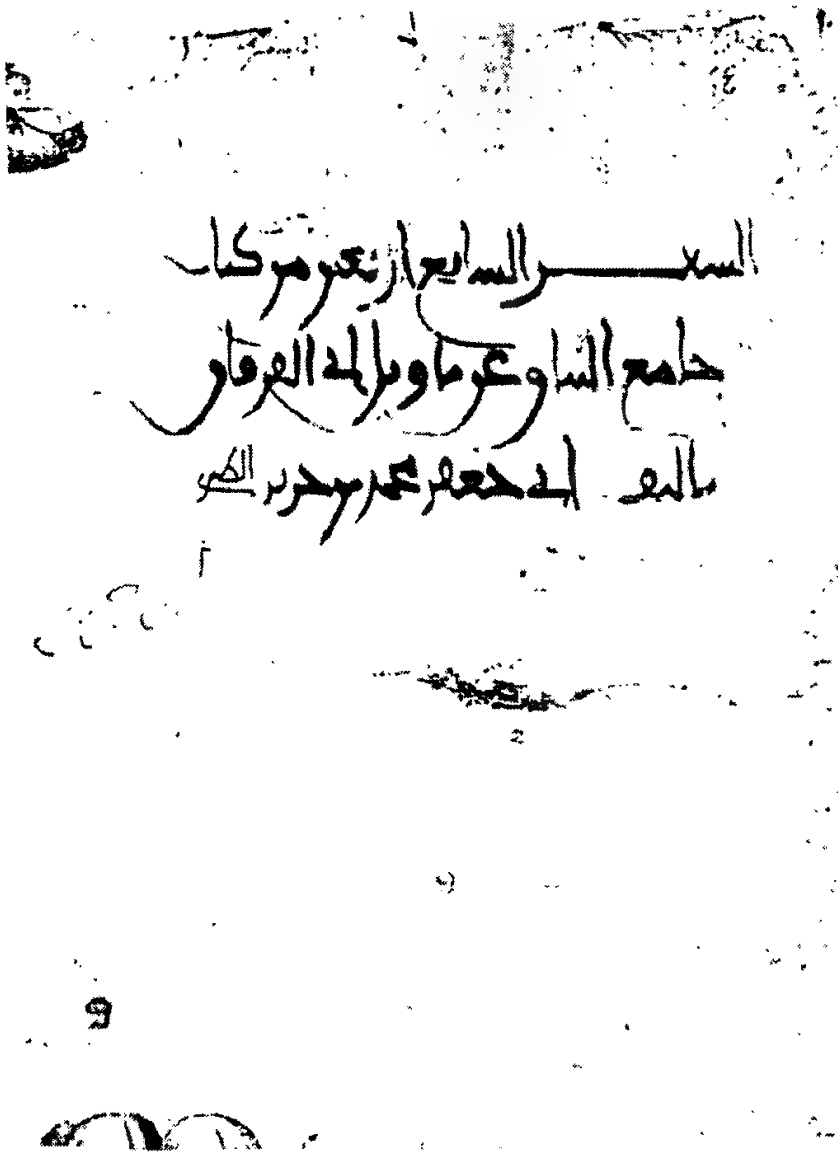 السفر السابع والعشرون من كتاب
جامع البيان عن تأويل آي القرآن
تأليف أبي جعفر محمد بن جرير الطبري